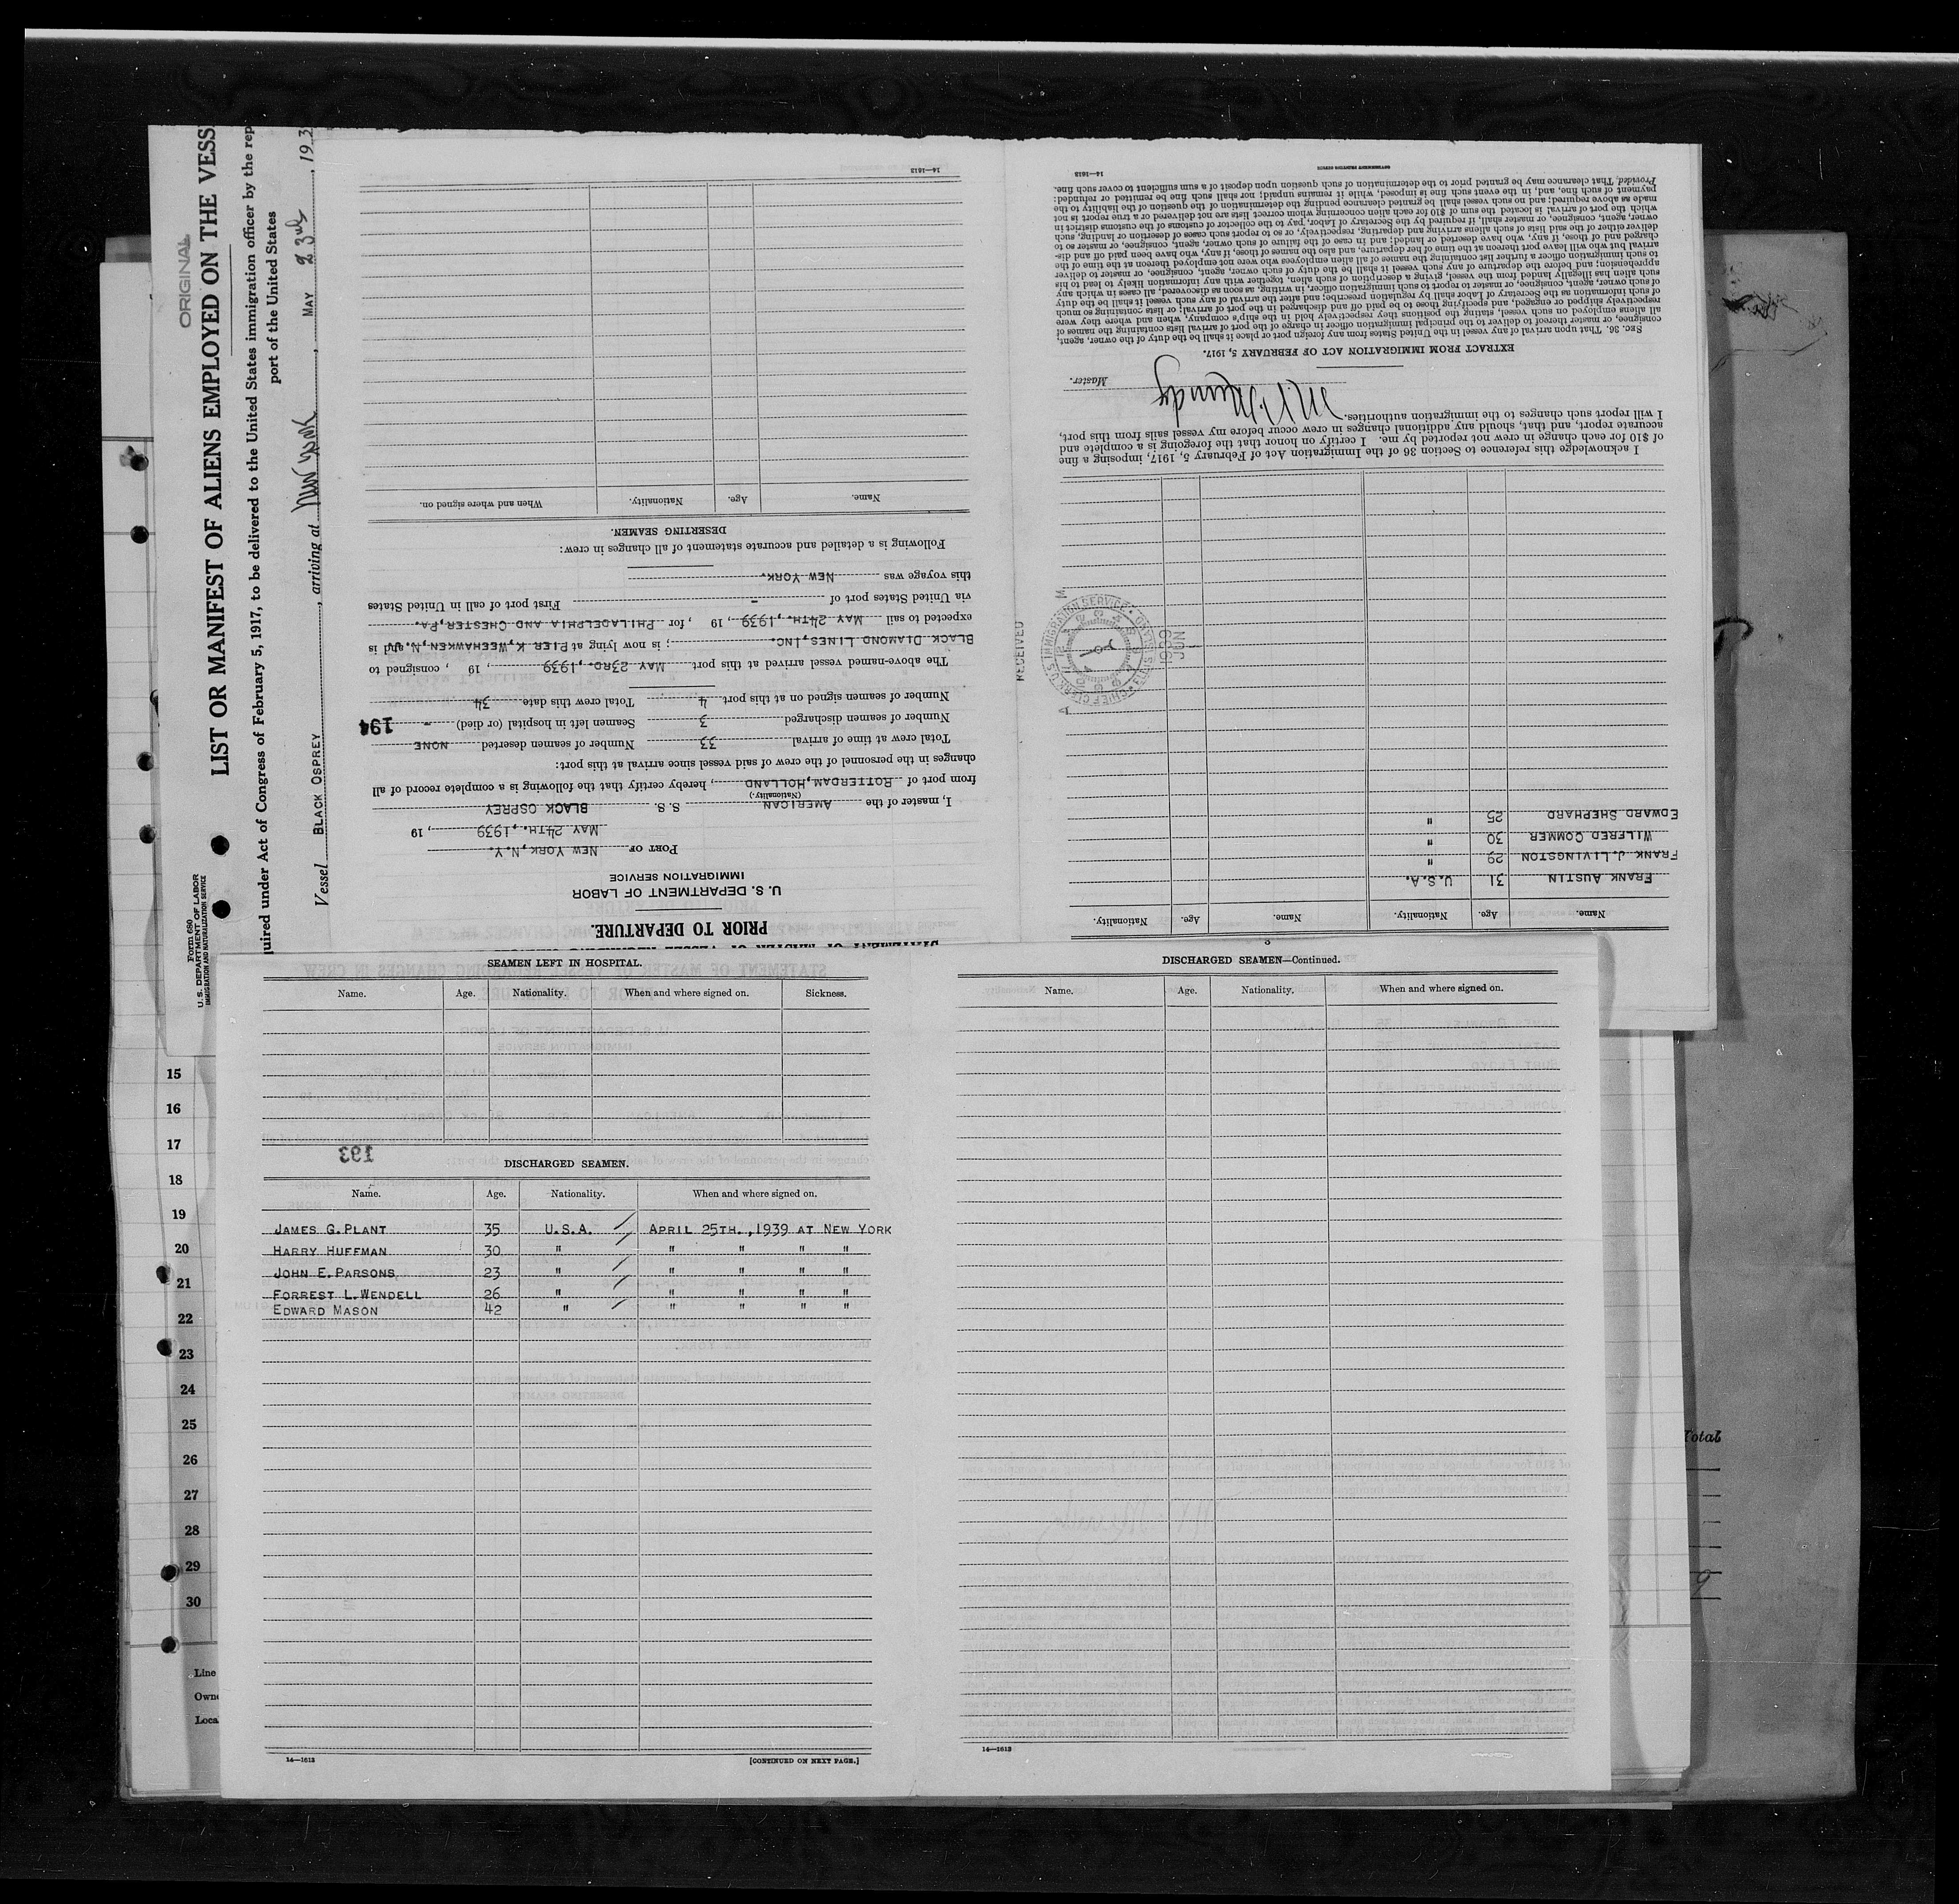 ORIGINAL
Form 680
U. S. DEPARTMENT OF LABOR
IMMIGRATION AND NATURALIZATION SERVICE
LIST OR MANIFEST OF ALIENS EMPLOYED ON THE VESS
quired under Act of Congress of February 5, 1917, to be delivered to the United States immigration officer by the rep
port of the United States
Vessel BLACK OSPREY, arriving at New York, MAY 23rd, 193
PRIOR TO DEPARTURE.
U. S. DEPARTMENT OF LABOR
IMMIGRATION SERVICE
PORT OF NEW YORK, N.Y.
MAY 24TH., 1939, 19
I, master of the AMERICAN S. S. BLACK OSPREY
(Nationality.)
from port of ROTTERDAM, HOLLAND, hereby certify that the following is a complete record of all
changes in the personnel of the crew of said vessel since arrival at this port:
Total crew at time of arrival 33 Number of seamen deserted NONE
Number of seamen discharged 3 Seamen left in hospital (or died) -
194
Number of seamen signed on at this port 4 Total crew this date 34
The above-named vessel arrived at this port MAY 23RD., 1939, 19 , consigned to
BLACK DIAMOND LINES, INC. ; is now lying at PIER K, WEEHAWKEN, N.J. and is
expected to sail MAY 24TH., 1939, 19 , for PHILADELPHIA AND CHESTER, PA.
via United States port of - First port of call in United States
this voyage was NEW YORK.
Following is a detailed and accurate statement of all changes in crew:
DESERTING SEAMEN.
Name. Age. Nationality. When and where signed on.
14—1613
3
Name. Age. Nationality. Name. Age. Nationality.
FRANK AUSTIN 31 U.S.A.
FRANK J. LIVINGSTON 29 "
WILFRED COMMER 30 "
EDWARD SHEPHARD 25 "
RECEIVED
JUN 1
1939
CHIEF CLERK U.S. IMMIGRATION SERVICE · ELLIS ISLAND
I acknowledge this reference to Section 36 of the Immigration Act of February 5, 1917, imposing a fine
of $10 for each change in crew not reported by me. I certify on honor that the foregoing is a complete and
accurate report, and that, should any additional changes in crew occur before my vessel sails from this port,
I will report such changes to the immigration authorities.
Master.
EXTRACT FROM IMMIGRATION ACT OF FEBRUARY 5, 1917.
SEC. 36. That upon arrival of any vessel in the United States from any foreign port or place it shall be the duty of the owner, agent,
consignee, or master thereof to deliver to the principal immigration officer in charge of the port of arrival lists containing the names of
all aliens employed on such vessel, stating the positions they respectively hold in the ship's company, when and where they were
respectively shipped or engaged, and specifying those to be paid off and discharged in the port of arrival; or lists containing so much
of such information as the Secretary of Labor shall by regulation prescribe; and after the arrival of any such vessel it shall be the duty
of such owner, agent, consignee, or master to report to such immigration officer, in writing, as soon as discovered, all cases in which any
such alien has illegally landed from the vessel, giving a description of such alien, together with any information likely to lead to his
apprehension; and before the departure of any such vessel it shall be the duty of such owner, agent, consignee, or master to deliver
to such immigration officer a further list containing the names of all alien employees who were not employed thereon at the time of the
arrival but who will leave port thereon at the time of her departure, and also the names of those, if any, who have been paid off and dis-
charged and of those, if any, who have deserted or landed; and in case of the failure of such owner, agent, consignee, or master so to
deliver either of the said lists of such aliens arriving and departing, respectively, or so to report such cases of desertion or landing, such
owner, agent, consignee, or master shall, if required by the Secretary of Labor, pay to the collector of customs of the customs district in
which the port of arrival is located the sum of $10 for each alien concerning whom correct lists are not delivered or a true report is not
made as above required; and no such vessel shall be granted clearance pending the determination of the question of the liability to the
payment of such fine, and, in the event such fine is imposed, while it remains unpaid; nor shall such fine be remitted or refunded:
Provided, That clearance may be granted prior to the determination of such question upon deposit of a sum sufficient to cover such fine.
14—1613
GOVERNMENT PRINTING OFFICE
SEAMEN LEFT IN HOSPITAL.
Name. Age. Nationality. When and where signed on. Sickness.
193
DISCHARGED SEAMEN.
Name. Age. Nationality. When and where signed on.
JAMES G. PLANT 35 U.S.A. APRIL 25TH., 1939 AT NEW YORK
HARRY HUFFMAN 30 " " " " "
JOHN E. PARSONS 23 " " " " "
FORREST L. WENDELL 26 " " " " "
EDWARD MASON 42 " " " " "
14—1613
[CONTINUED ON NEXT PAGE.]
DISCHARGED SEAMEN—Continued.
Name. Age. Nationality. When and where signed on.
14—1613
15
16
17
18
19
20
21
22
23
24
25
26
27
28
29
30
Line
Owne
Loca
Total